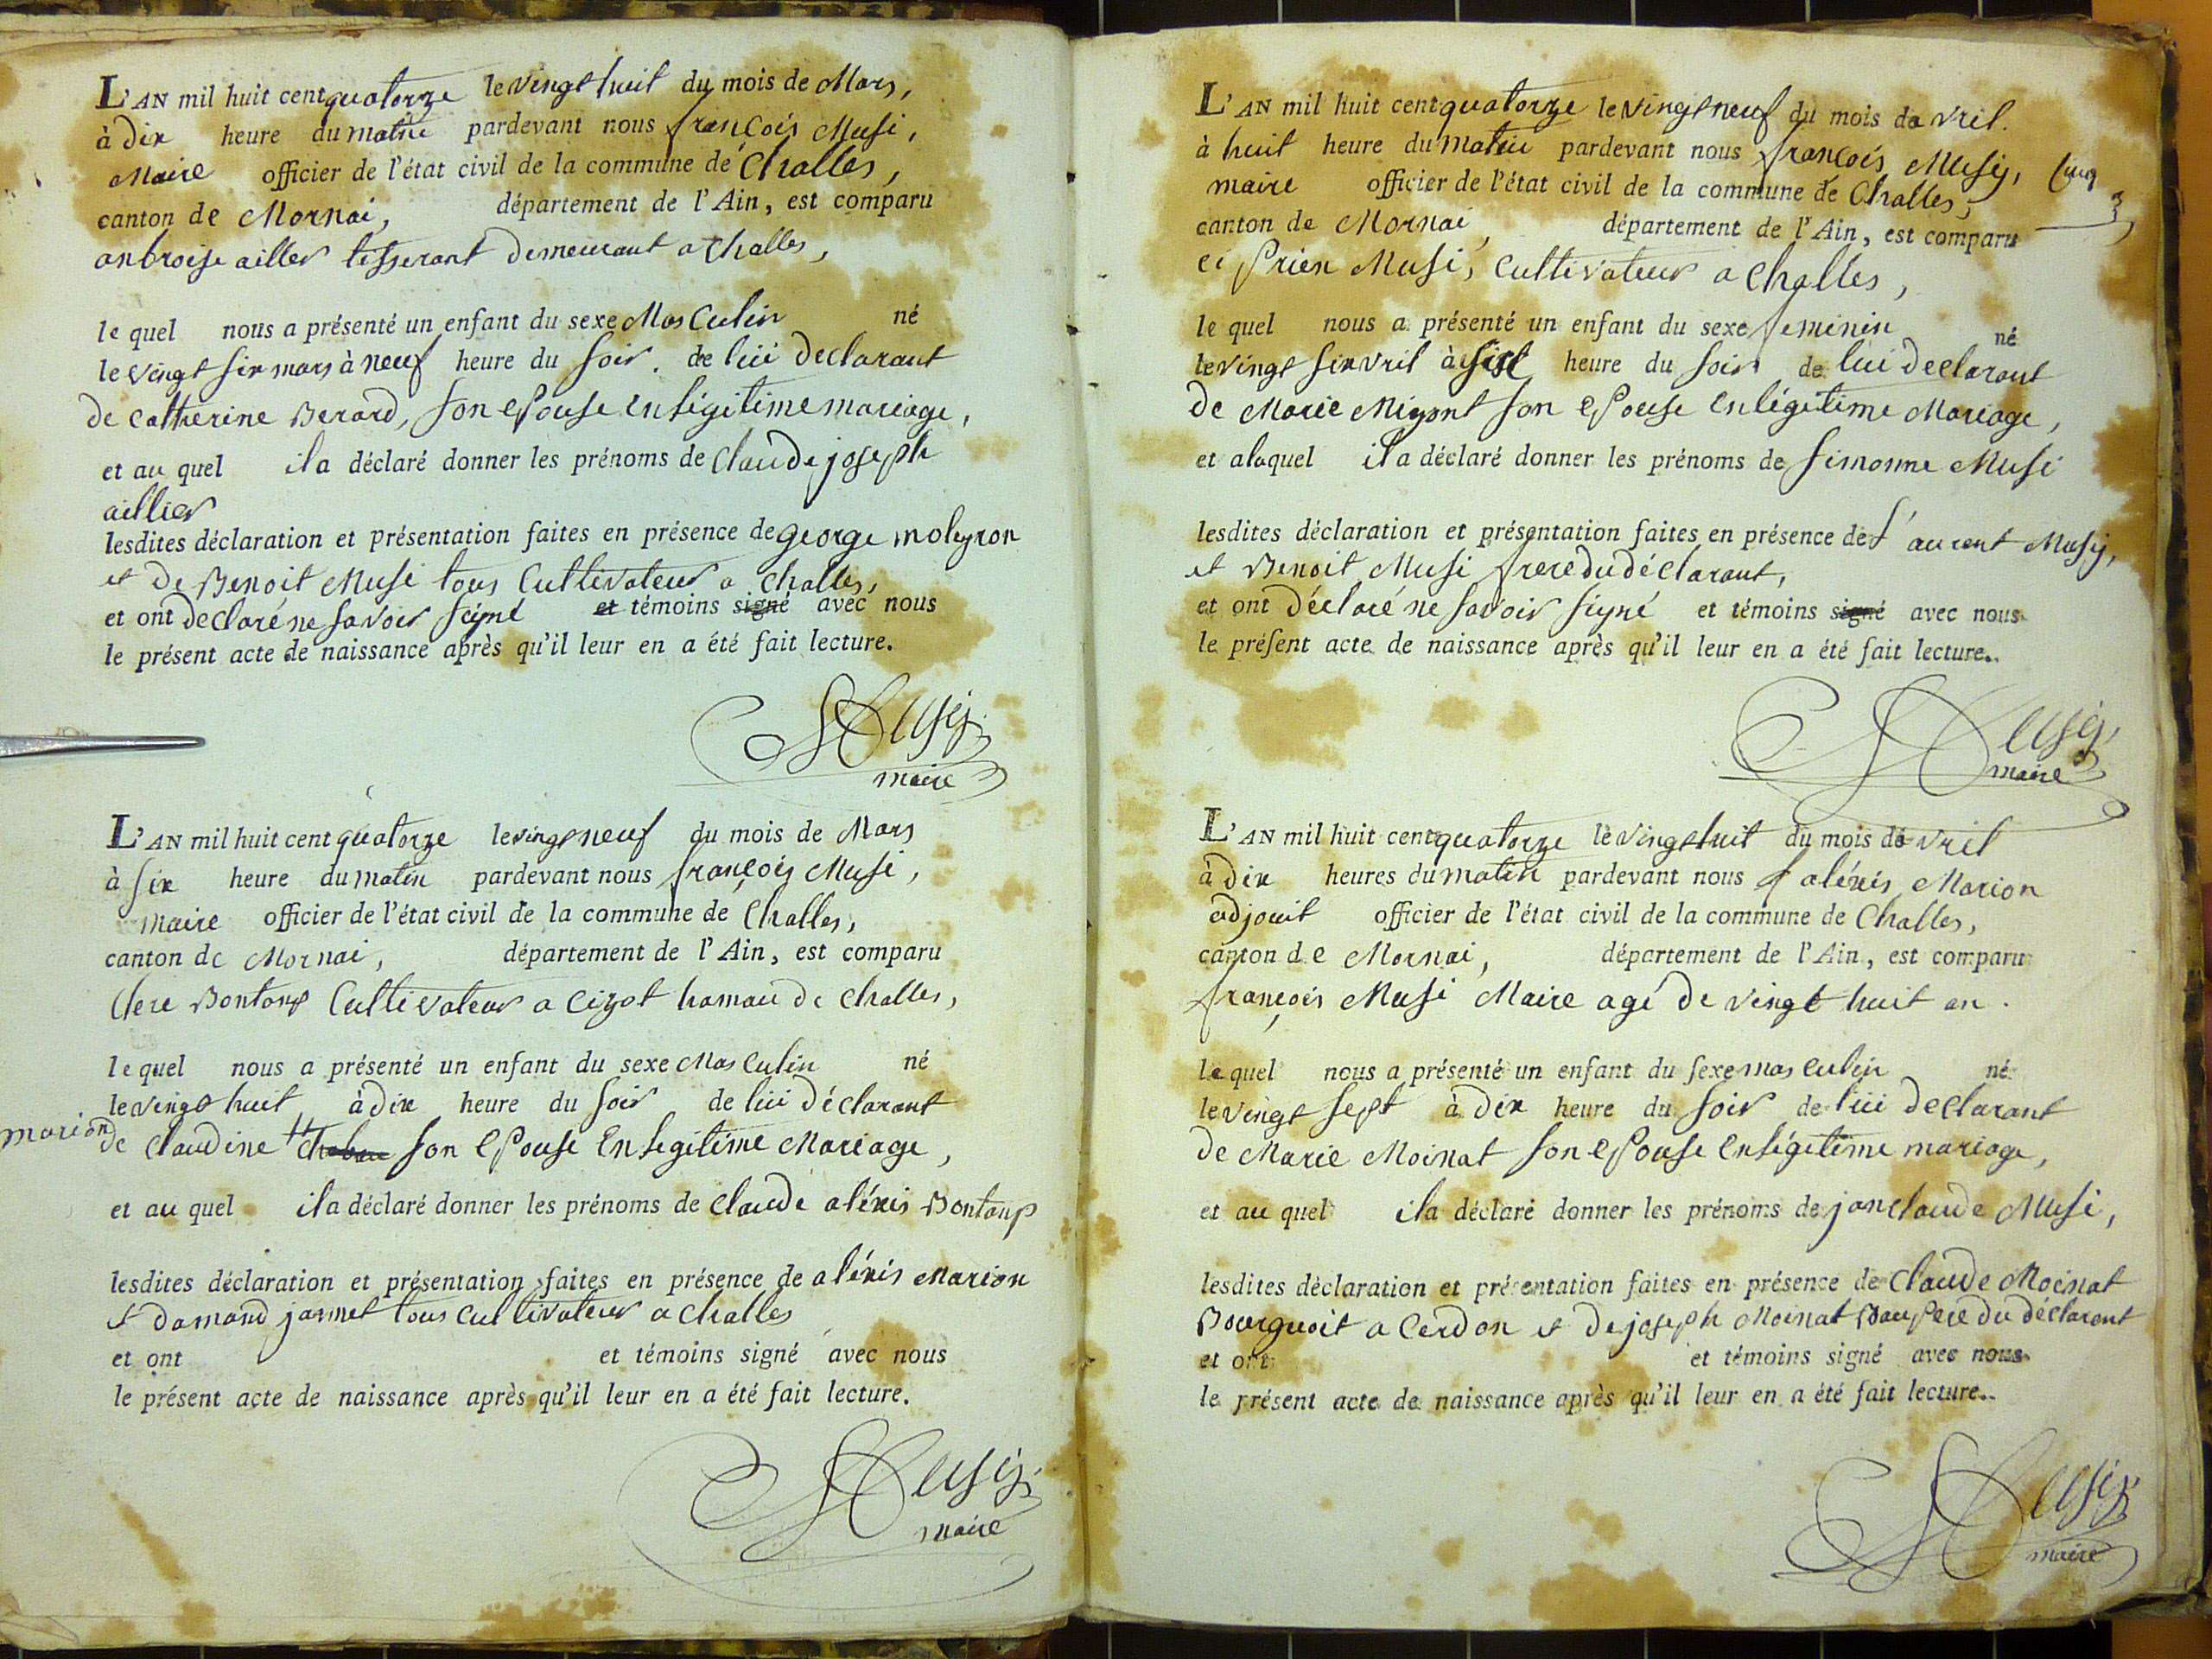 L'AN mil huit cent quatorze le vingt huit du mois de Mars,
à dix heure du matin pardevant nous françois Musi,
Maire officier de l'état civil de la commune de Challes,
canton de Mornai, département de l'Ain, est comparu
anbroise ailler tisserant demeurant a Challes,
le quel nous a présenté un enfant du sexe Masculin né
le vingt six mars à neuf heure du soir. de lui declarant
de Catherine Berard, son epouse en légitime mariage,
et au quel il a déclaré donner les prénoms de Claude joseph
aillier
lesdites déclaration et présentation faites en présence de george moleyron
et de Benoit Musi tous Cultivateur a Challes,
et ont declaré ne savoir signé et témoins signé avec nous
le présent acte de naissance après qu'il leur en a été fait lecture.
Musij
maire
L'AN mil huit cent quatorze le vingt neuf du mois de Mars
à six heure du matin pardevant nous françois Musi,
maire officier de l'état civil de la commune de Challes,
canton de Mornai, département de l'Ain, est comparu
Clere Bontanp Cultivateur a Cizot hamau de Challes,
le quel nous a présenté un enfant du sexe Masculin né
le vingt huit à dix heure du soir de lui déclarant
marion
de Claudine son epouse En legitime Mariage,
et au quel il a déclaré donner les prénoms de Claude aléxis Bontanp
lesdites déclaration et présentation faites en présence de aléxis Marion
et damand jannet tous cultivateur a Challes
et ont et témoins signé avec nous
le présent acte de naissance après qu'il leur en a été fait lecture.
Musij
maire
L'AN mil huit cent quatorze le vingt neuf du mois davril.
à huit heure du matin pardevant nous françois Musij,
maire officier de l'état civil de la commune de Challes,
canton de Mornai, département de l'Ain, est comparu
ci prien Musi, Cultivateur a Challes,
le quel nous a présenté un enfant du sexe feminin né
le vingt six vril à sist heure du soir de lui declarant
de Marie Migont son epouse en légitime Mariage,
et a laquel il a déclaré donner les prénoms de Simonne Musi
lesdites déclaration et présentation faites en présence de l'aurent Musij,
et Benoit Musi frere du déclarant,
et ont déclaré ne savoir signé et témoins signé avec nous
le présent acte de naissance après qu'il leur en a été fait lecture.
Musij
maire
L'AN mil huit cent quatorze le vingt huit du mois davril
à dix heures du matin pardevant nous aléxis Marion
adjouit officier de l'état civil de la commune de Challes,
canton de Mornai, département de l'Ain, est comparu
françois Musi Maire agé de vingt huit an.
le quel nous a présenté un enfant du sexe masculin né
le vingt sept à dix heure du soir de lui declarant
de Marie Moinat son epouse en légitime mariage,
et au quel il a déclaré donner les prénoms de jan Claude Musi,
lesdites déclaration et présentation faites en présence de Claude Moinat
Bourguoit a Cerdon et de joseph Moinat Baupere du déclarent
et ont et témoins signé avec nous
le présent acte de naissance après qu'il leur en a été fait lecture.
Musij
maire